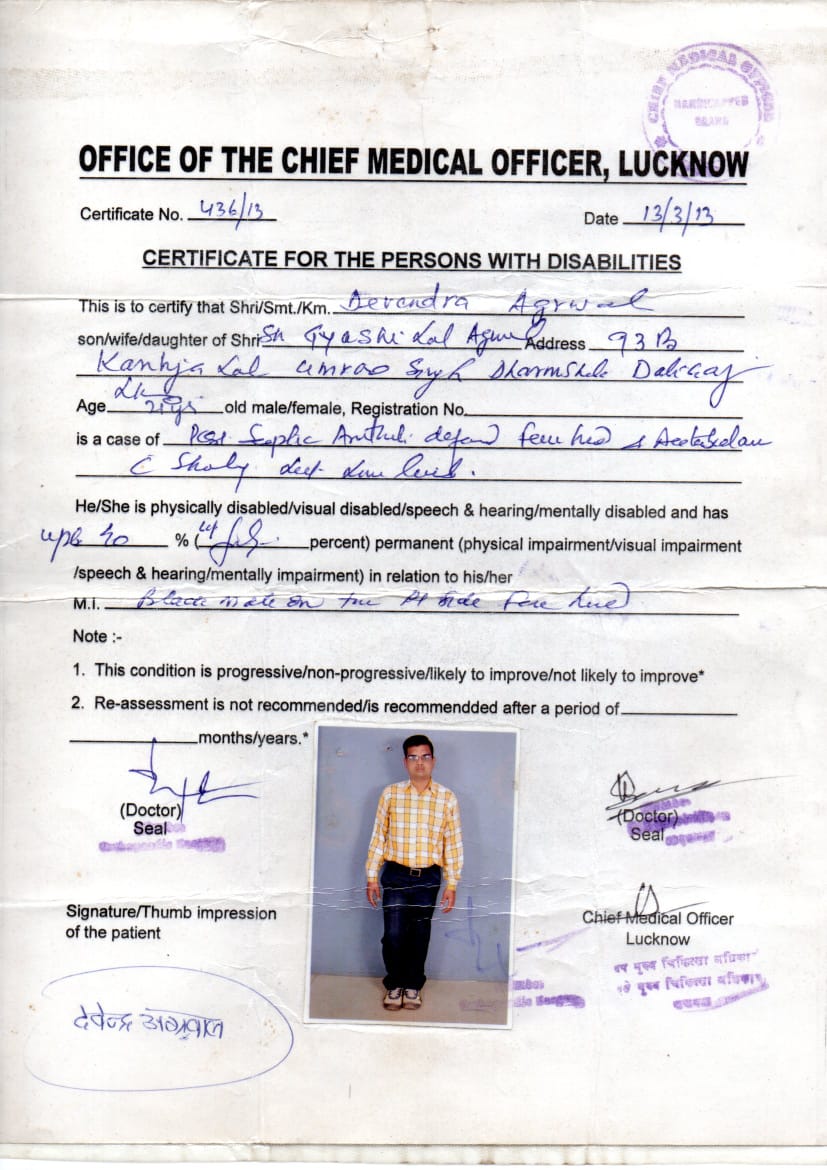 CHIEF MEDICAL OFFICER
HANDICAPPED
BOARD
OFFICE OF THE CHIEF MEDICAL OFFICER, LUCKNOW
Certificate No. 436/13 Date 13/3/13
CERTIFICATE FOR THE PERSONS WITH DISABILITIES
This is to certify that Shri/Smt./Km. Devendra Agrwal
son/wife/daughter of Shri Sh Gyashi Lal Address 93 B
Kanhja Lal Umrao Singh Dharmshala Daliganj
Lko
Age old male/female, Registration No.
is a case of Post Septic Femur head & Acetabulum
He/She is physically disabled/visual disabled/speech & hearing/mentally disabled and has
upto 40 % ( percent) permanent (physical impairment/visual impairment
/speech & hearing/mentally impairment) in relation to his/her
M.I. Black mole on the Rt side Fore head
Note :-
1. This condition is progressive/non-progressive/likely to improve/not likely to improve*
2. Re-assessment is not recommended/is recommendded after a period of
months/years.*
(Doctor) (Doctor)
Seal Seal
Signature/Thumb impression Chief Medical Officer
of the patient Lucknow
उप मुख्य चिकित्सा अधिकारी
मुख्य चिकित्सा अधिकारी
लखनऊ
देवेन्द्र अग्रवाल